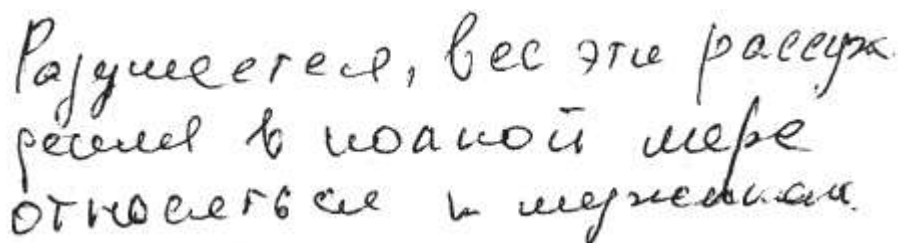 Разумеется, вес эти рассуж
дения в полной мере
относяться к мужчинам.